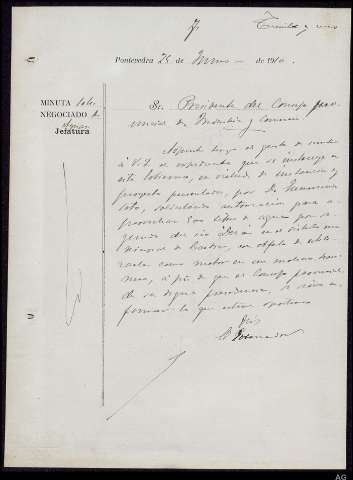 7
Treinta y uno
Pontevedra 25 de Enero de 1910.
MINUTA
NEGOCIADO de
Aguas
Jefatura
Sr. Presidente del Consejo pro-
vincial de Industria y Comercio
Adjunto tengo el gusto de remitir
á V.S. el expediente que se instruye en
este Gobierno, en virtud de instancia y
proyecto presentados, por Dn
solicitando autorización para a-
provechar 500 litros de agua por se-
gundo del río en el distrito mu-
nicipal de con objeto de utili-
zarla como motor en un molino hari-
nero, á fin de que el Consejo provincial
de su digna presidencia, se sirva in-
formar lo que estime oportuno
Dios
El Gobernador
AG